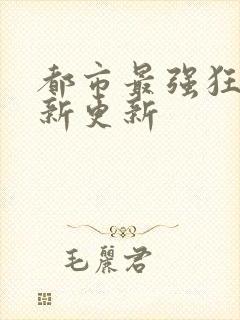 都市最强狂
新更新
毛丽君